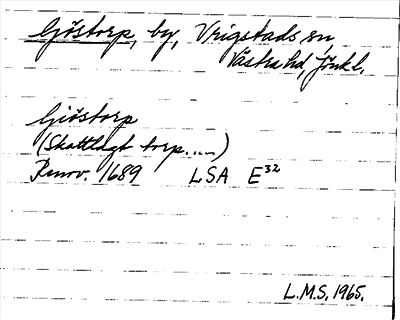 Gjöstorp, by, Vrigstads sn,
Västra hd, Jönk l.
Giöstorp
(Skattlagt torp.....)
Renov. 1689 LSA E32
L.M.S. 1965.